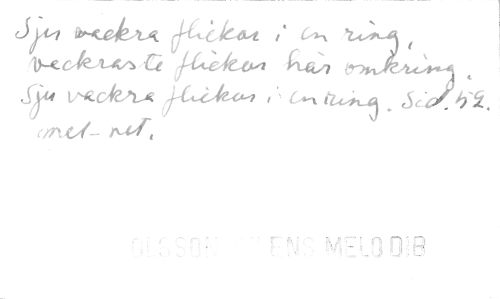 Sju vackra flickor i en ring,
vackraste flickor här omkring.
Sju vackra flickor i en ring. Sid. 52.
mel - not.
OLSSON ENS MELODIB